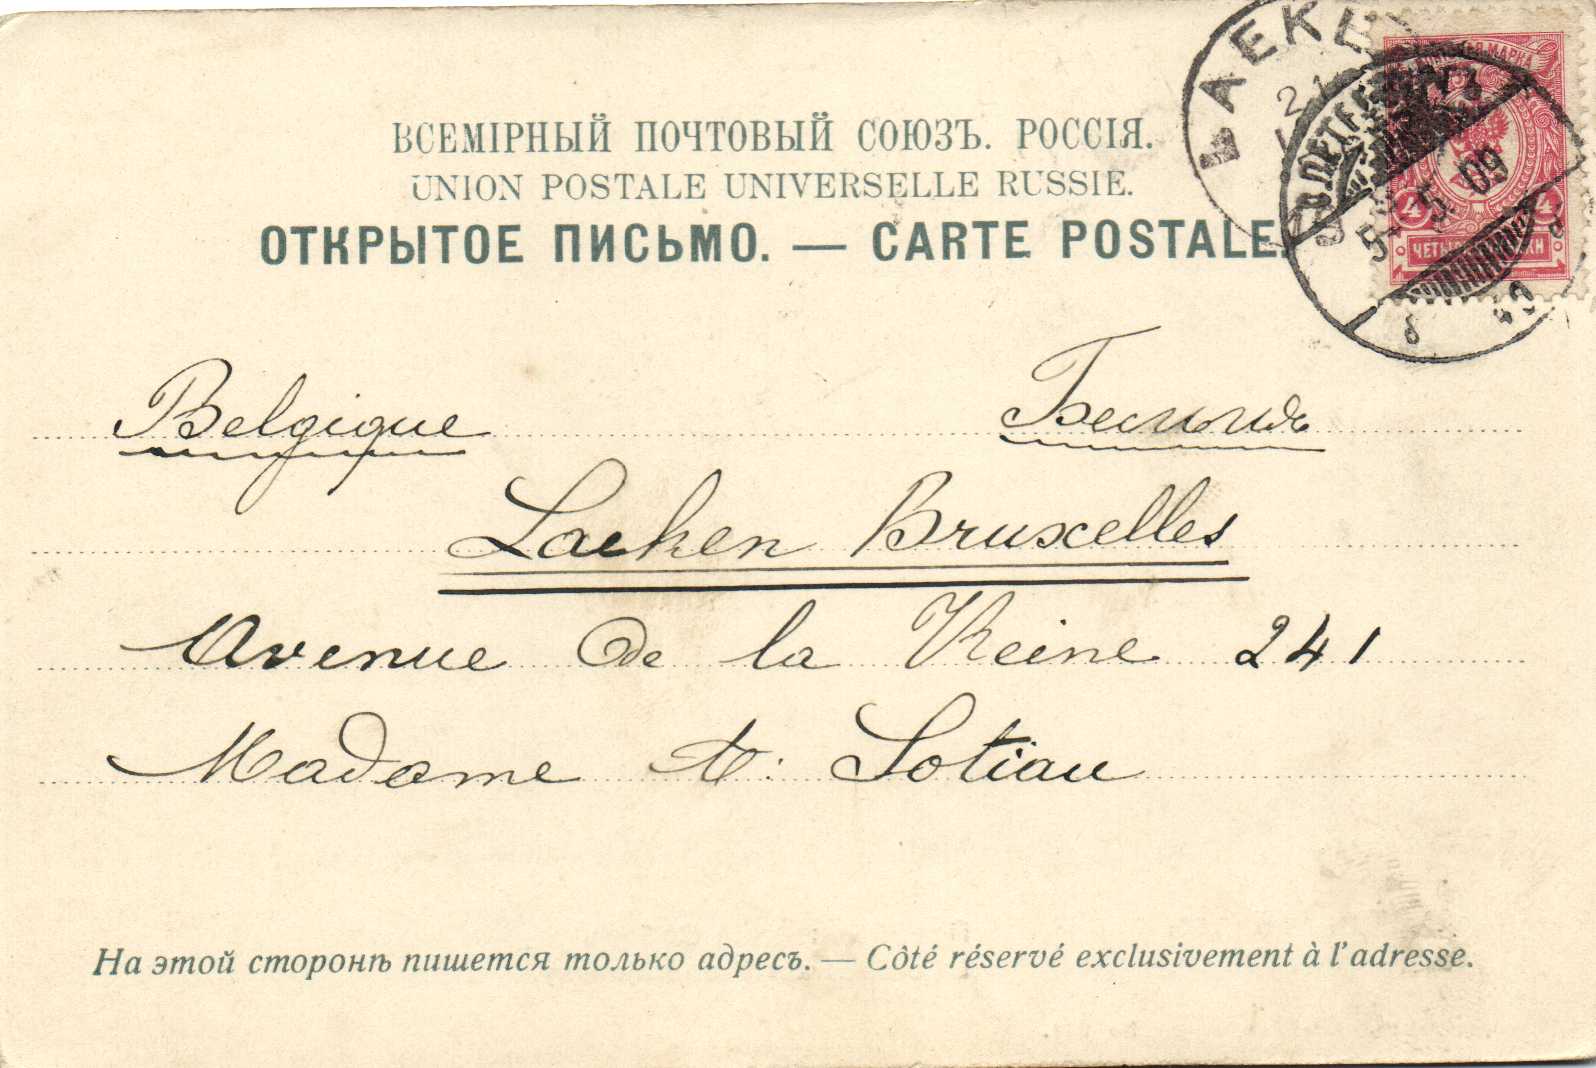 ВСЕМІРНЫЙ ПОЧТОВЫЙ СОЮЗЪ. РОССІЯ.
UNION POSTALE UNIVERSELLE RUSSIE.
ОТКРЫТОЕ ПИСЬМО. — CARTE POSTALE.
LAEKEN
21
5. 09
4 4
Belgique
Laeken Bruxelles
Avenue de la Reine 241
Madame t. Lotiau
На этой сторонѣ пишется только адресъ. — Côté réservé exclusivement à l'adresse.